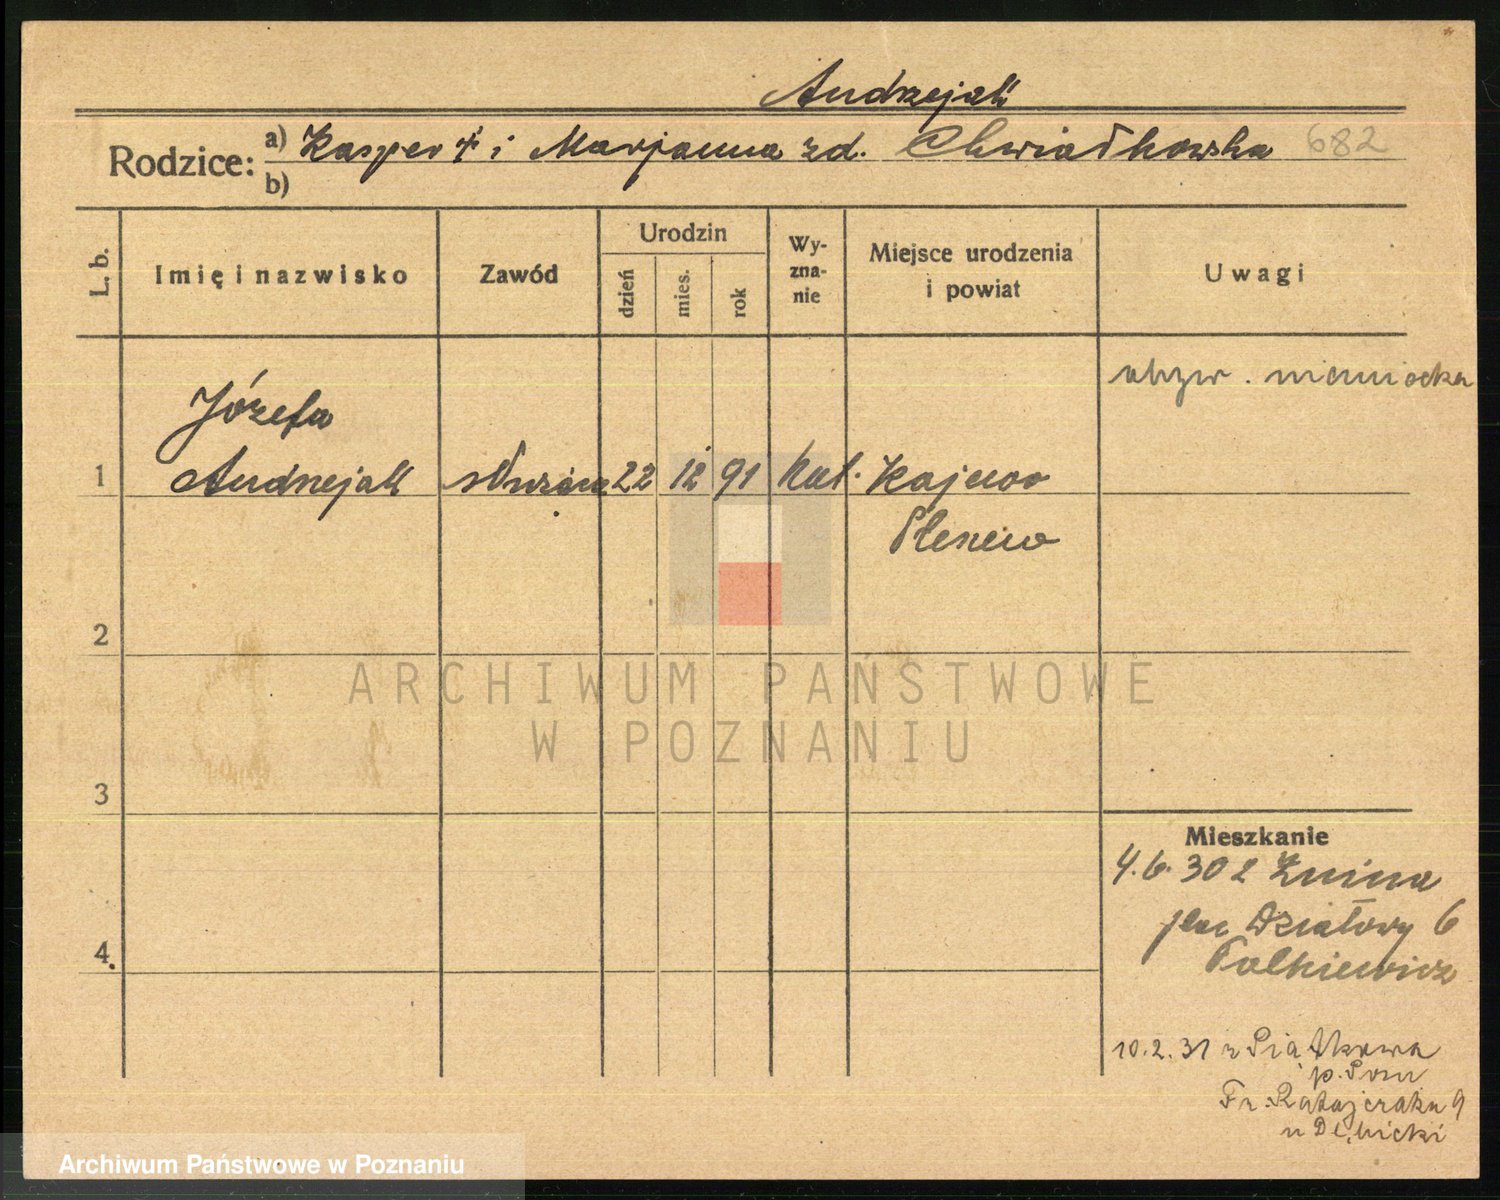 Andrzejak
Rodzice: a) Kasper † i Marjanna zd. Chwiałkowska 682
b)
L. b.
Imię i nazwisko
Zawód
Urodzin
dzień
mies.
rok
Wy-
zna-
nie
Miejsce urodzenia
i powiat
Uwagi
niemiecka
Józefa
1 Andrzejak służąca 22 12 91 kat. Kajewo
Pleszew
2
3
4.
Mieszkanie
4.6.30 z Żnina
plac Działowy 6
10.2.31 z Piątkowa
p. Pozn
Fr. Ratajczaka 9
ARCHIWUM PAŃSTWOWE
W POZNANIU
Archiwum Państwowe w Poznaniu